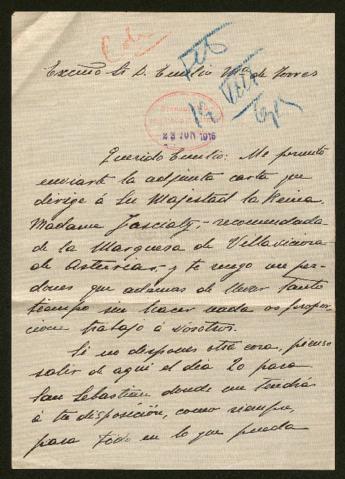 Excmo Sr D. Emilio Mª de Torres
23 JUN 1916
Querido Emilio: Me permito
enviarte la adjunta carta que
dirige á Su Majestad la Reina
Madame, - recomendada
de la Marquesa de Villaviciosa
de Asturias, - y te ruego me per-
dones que además de llevar tanto
tiempo sin hacer nada os propor-
cione trabajo á vosotros.
Si no dispones otra cosa, pienso
salir de aquí el día 20 para
San Sebastian donde me tendrás
á tu disposición, como siempre,
para todo en lo que pueda